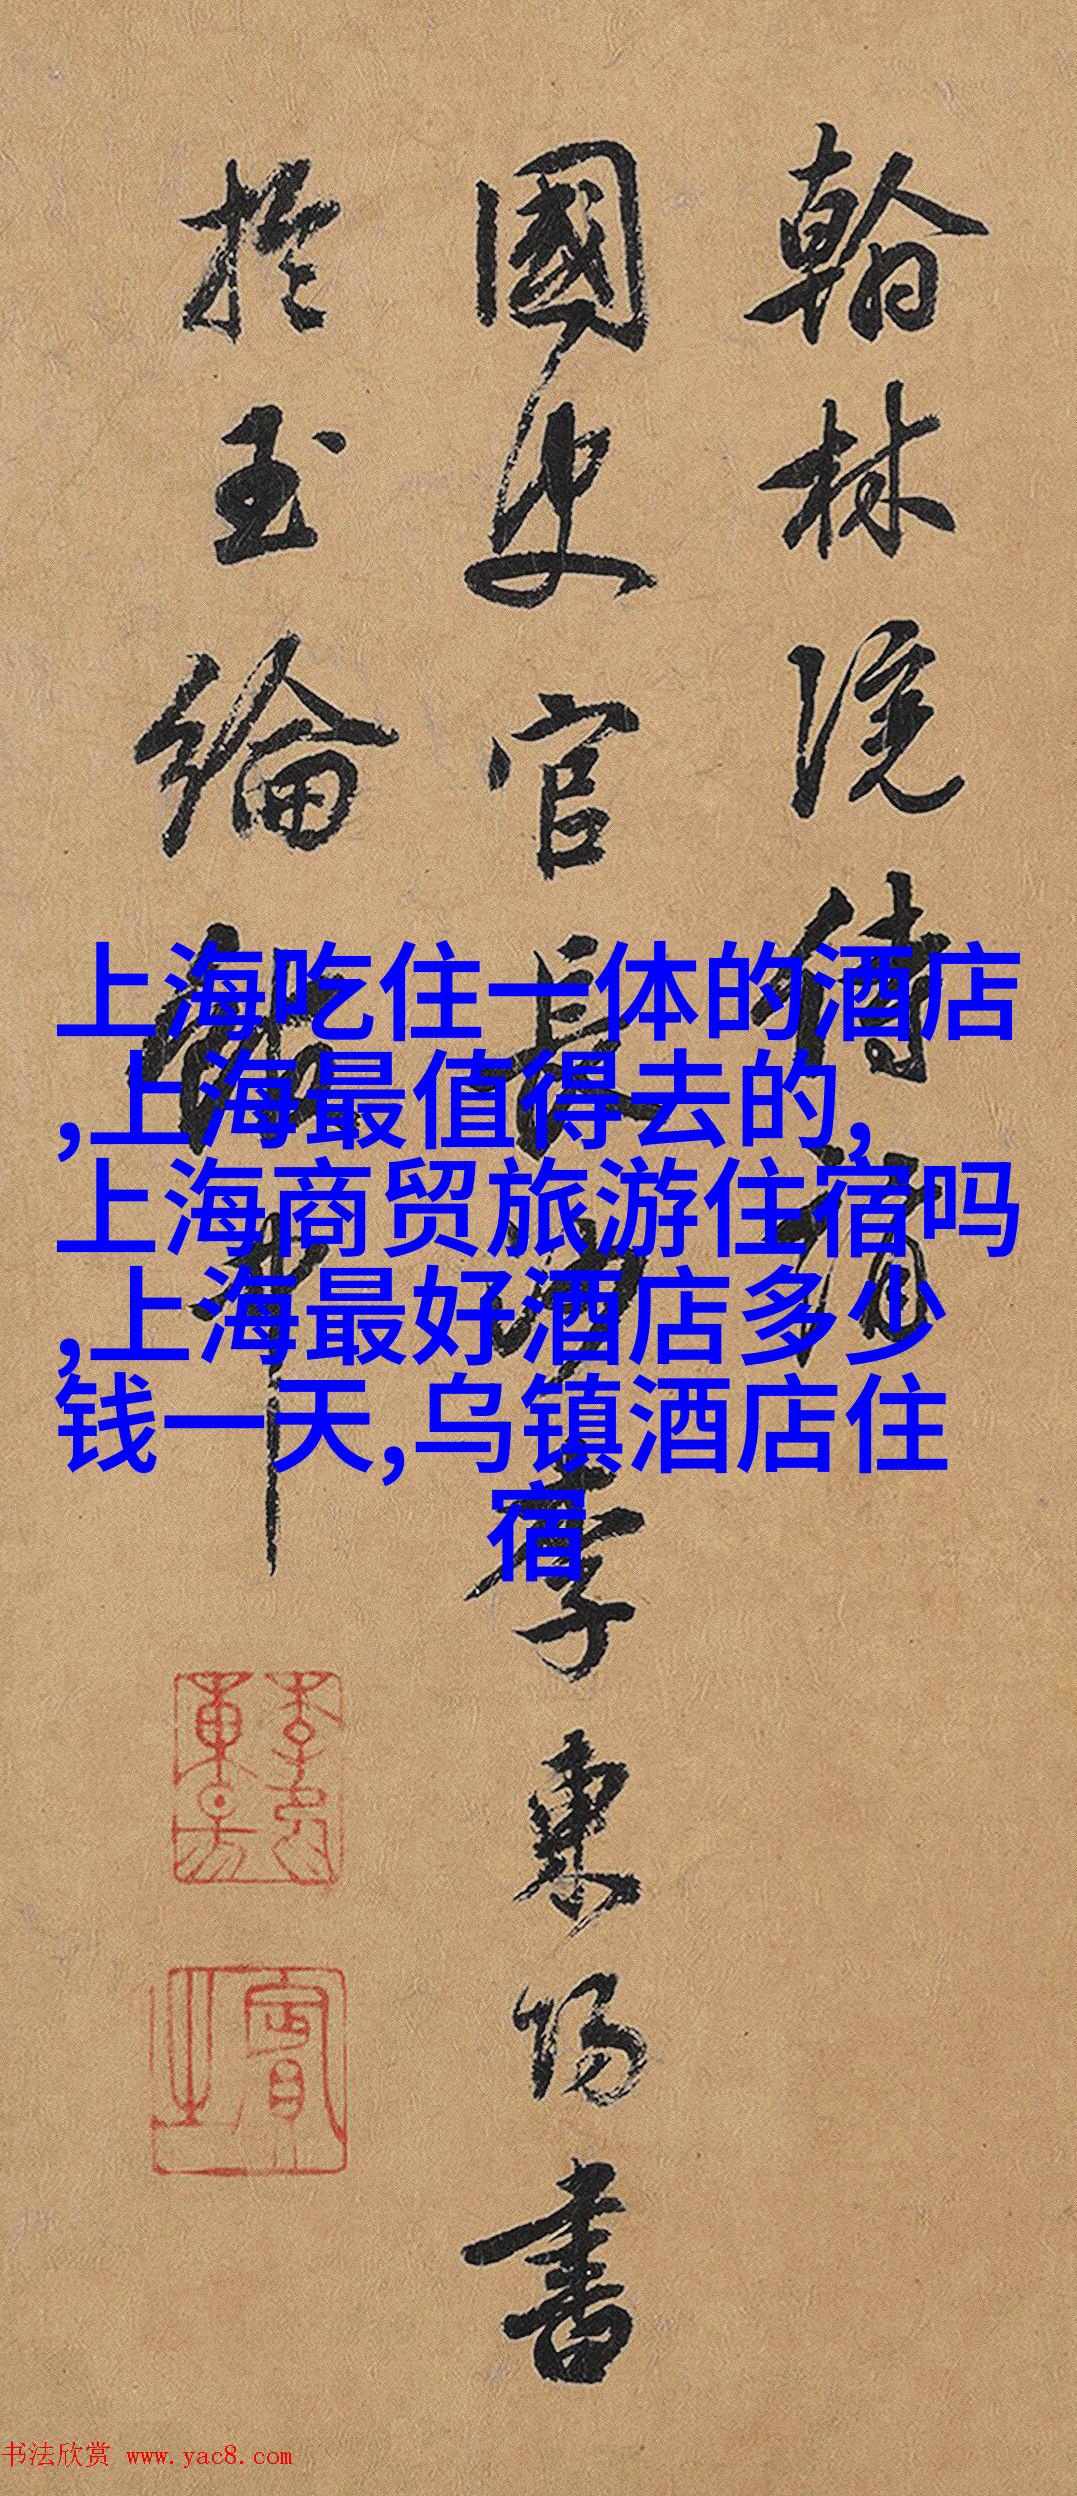 翰林院侍讀
國史官長沙李東陽書
於玉綸軒中
上海吃住一体的酒店
,上海最值得去的,
上海商贸旅游住宿吗
,上海最好酒店多少
钱一天,乌镇酒店住
宿
书法欣赏 www.yac8.com